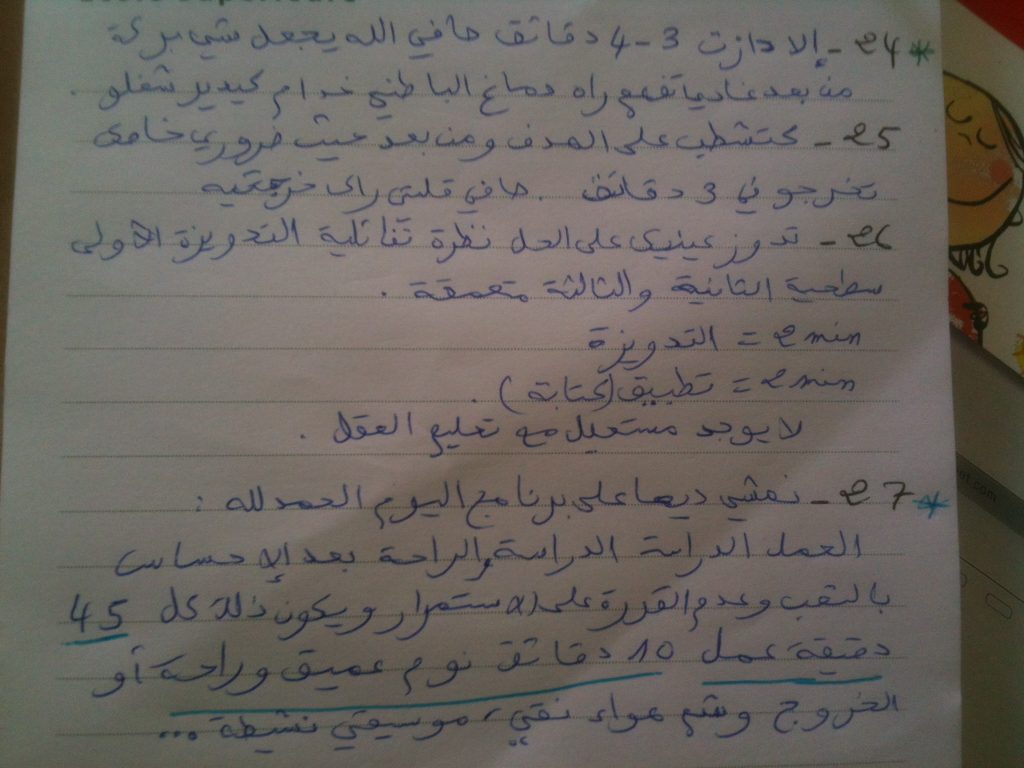 * 24 - إلا دازت 3-4 دقائق صافي الله يجعل شي بركة
من بعد غاديا تفهم راه دماغ الباطني خدام كيدير شغلو .
25 - كتشطب على الهدف ومن بعد حيث ضروري خاصك
تخرجو في 3 دقائق . صافي قلتي راك خرجتيه
26 - تدوز عينيك على الحل نظرة تفائلية التدويزة الأولى
سطحية الثانية والثالثة متعمقة .
2min = التدويزة
2min = تطبيق (كتابة) .
لا يوجد مستحيل مع تعليم العقل .
* 27 - نمشي ديما على برنامج اليوم الحمد لله :
العمل الدراسة والراحة بعد الإحساس
بالتعب وعدم القدرة على الاستمرار ويكون ذلك كل 45
دقيقة عمل 10 دقائق نوم عميق وراحة أو
الخروج وشم هواء نقي، موسيقى نشيطة ...